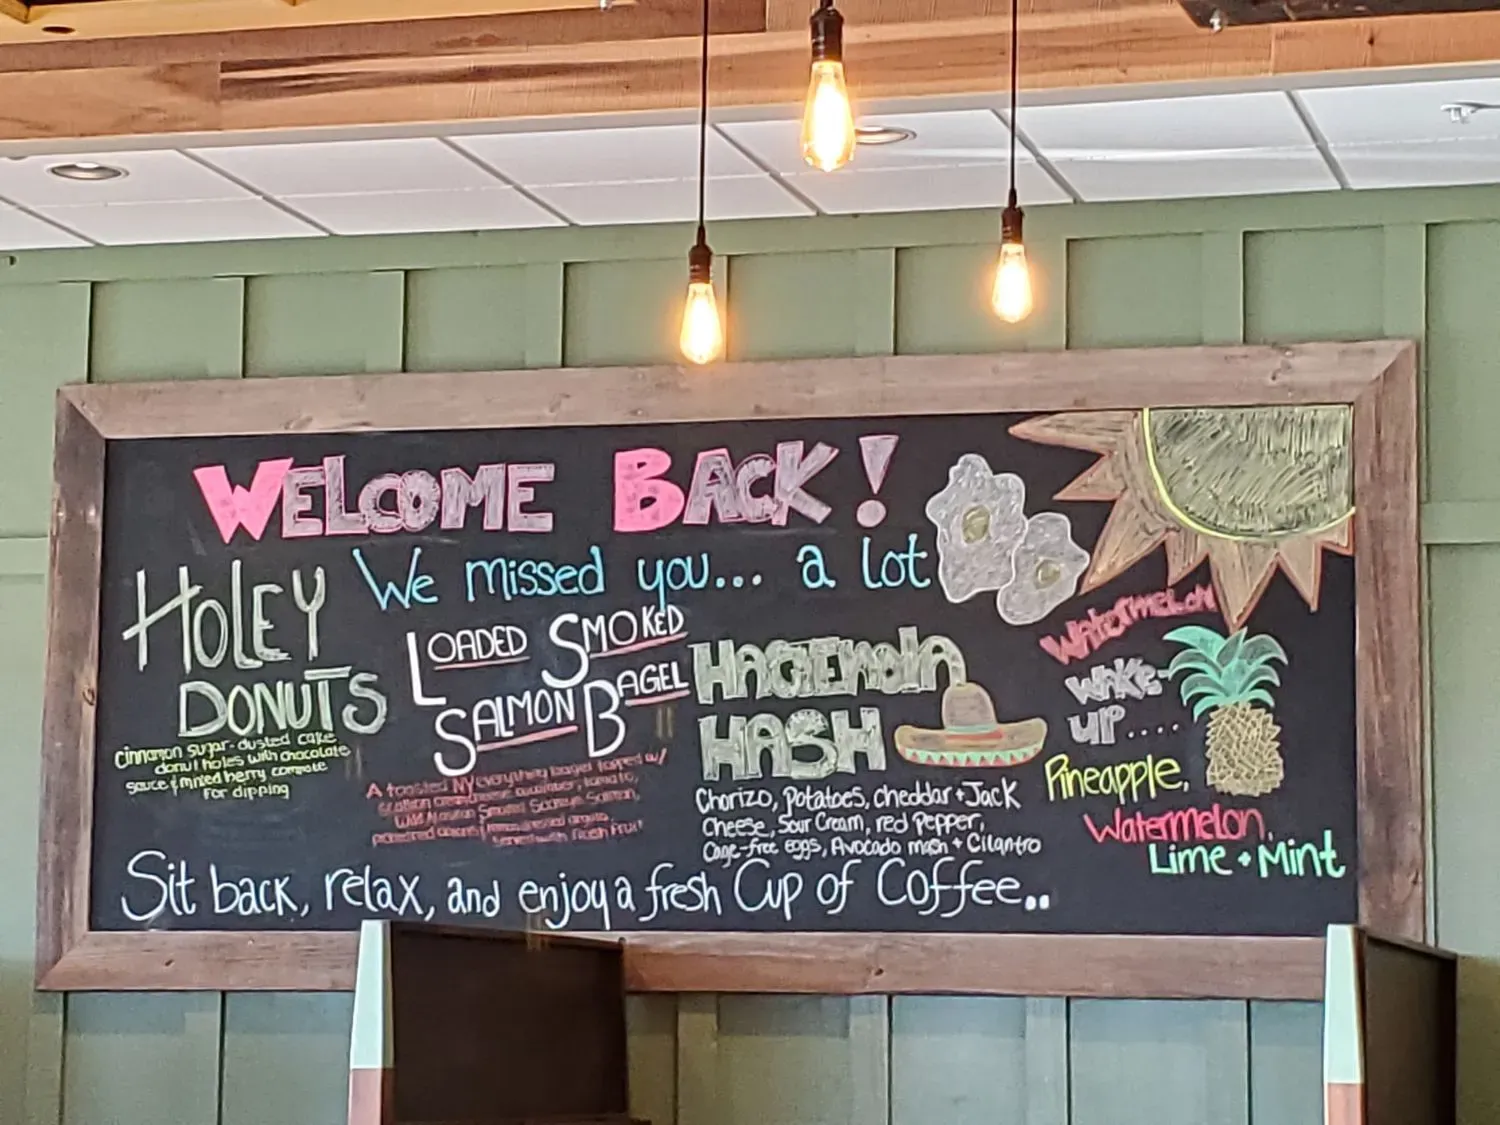 WELCOME BACK!
We missed you... a lot
HOLEY
DONUTS
cinnamon sugar-dusted cake
donut holes with chocolate
sauce & mixed berry compote
for dipping
LOADED SMOKED
SALMON BAGEL
A toasted NY everything bagel topped w/
scallion cream cheese, cucumber, tomato,
Wild Alaskan Smoked Sockeye Salmon,
served with fresh fruit
HACIENDA
HASH
Chorizo, potatoes, cheddar + Jack
Cheese, Sour Cream, red pepper,
Cage-free eggs, Avocado mash + Cilantro
WATERMELON
WAKE-
UP.....
Pineapple,
Watermelon,
Lime + Mint
Sit back, relax, and enjoy a fresh Cup of Coffee..